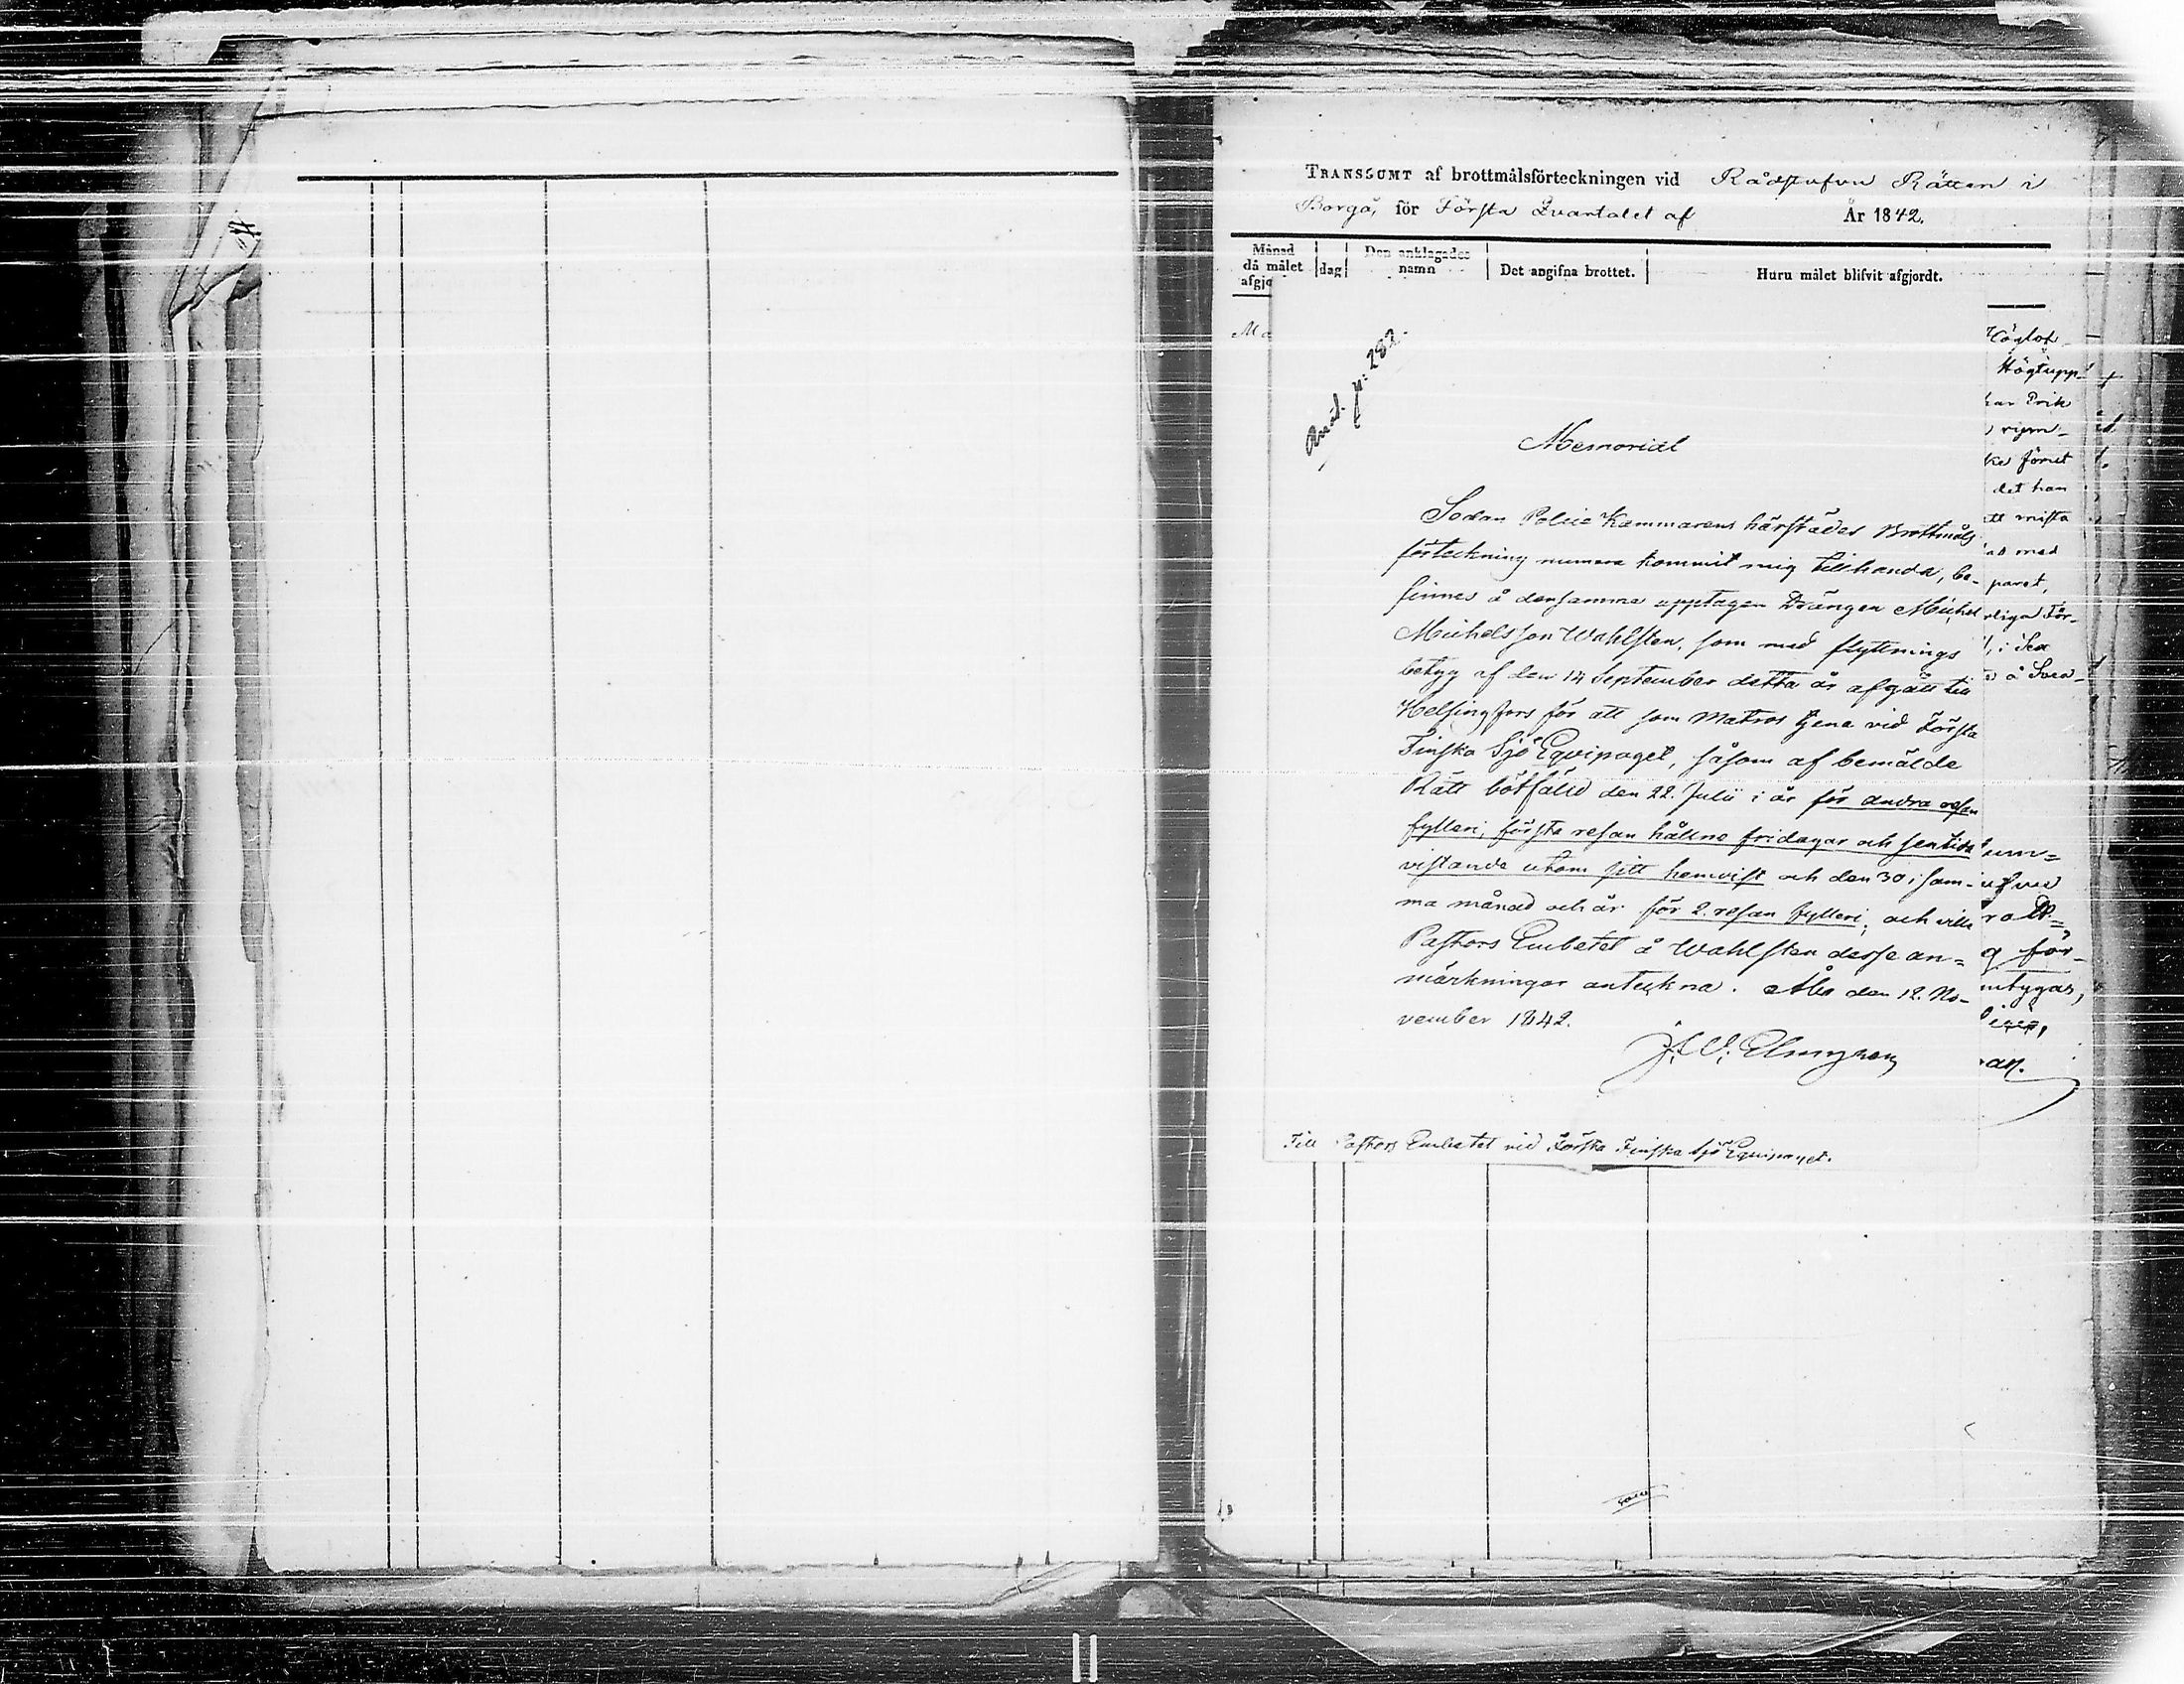 TRANSSUMT af brottmålsförteckningen vid Rådstufvu Rätten i
Borgå, för Första Qvartalet af År 1842.
Månad då målet afgjo
dag
Den anklagades namn
Det angifna brottet.
Huru målet blifvit afgjordt.
Ma
№ 282.
Memorial
Sedan Police Kammarens härstädes Brottmåls
förteckning numera kommit mig tillhanda, be-
finnes å densamma upptagen Drängen Michel
Michelsson Wahlsten, som med flyttnings
betyg af den 14 September detta år afgått till
Helsingfors för att som Matros tjena vid Första
Finska Sjö Equipaget, såsom af bemälde
Rätt bötfälld den 22. Julii i år för andra resan
fylleri, första resan hållne fridagar och sentida
vistande utom sitt hemvist och den 30 i sam-
ma månad och år för 2. resan fylleri; och ville
Pastors Embetet å Wahlsten desse an=
märkningar anteckna. Åbo den 12. No-
vember 1842.
Till Pastors Embetet vid Första Finska Sjö Equipaget.
Höglof-
Högtupp
har Erik
det han
att mista
med
paret,
rliga För-
i Sex
å Svea-
um=
g för-
mtygas,
an.